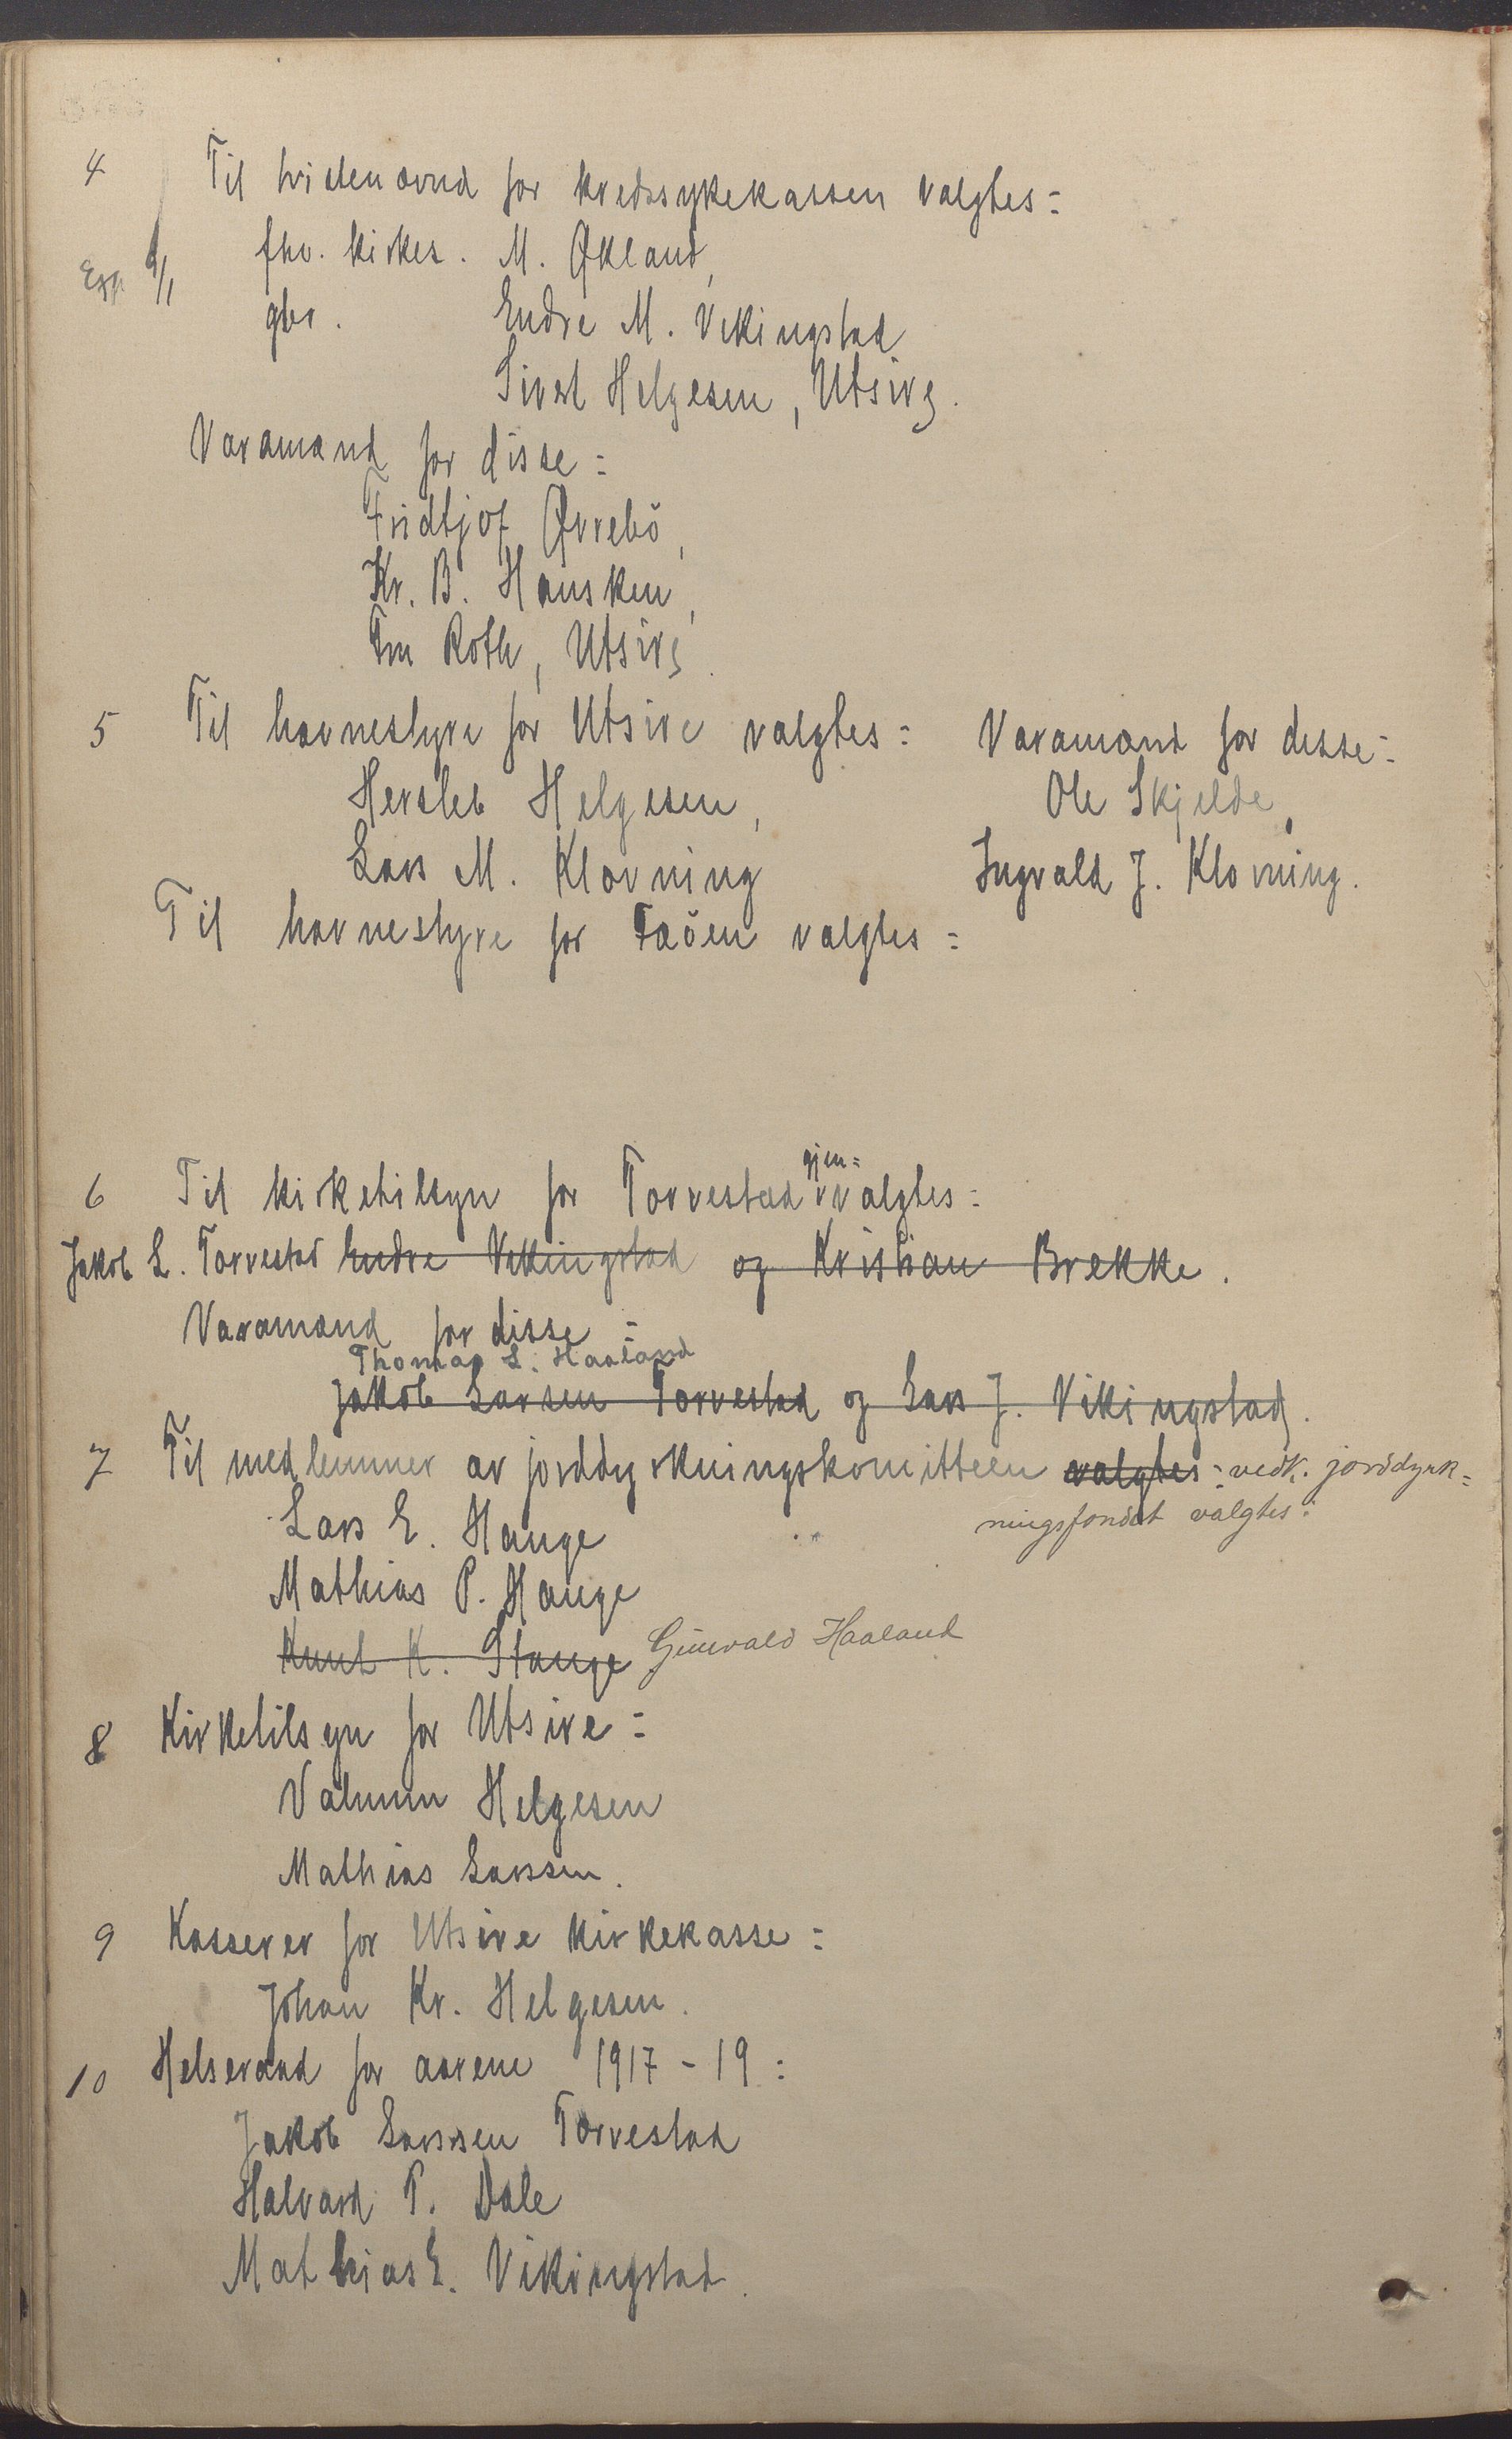 4 Til tvistenævnd for kredssykekassen valgtes:
Exp 9/1
fhv. kirkes. M. Økland,
gbr. Endre M. Vikingstad
Sivert Helgesen, Utsire.
Varamænd for disse:
Fridtjof Øvrebö,
Kr. B. Hausken,
Tm Roth, Utsire.
5 Til havnestyre for Utsire valgtes: Varamænd for disse:
Hersleb Helgesen, Ole Skjelde,
Lars M. Klovning Ingvald J. Klovning.
Til havnestyre for Fæöen valgtes:
6 Til kirketilsyn for Torvestad gjen=valgtes:
Jakob L. Torvestad Endre Vikingstad og Kristian Brekke.
Varamænd for disse:
Thomas L. Haaland
Jakob Larsen Torvestad og Lars J. Vikingstad.
7 Til medlemmer av jorddyrkningskomitteen valgtes: vedk. jorddyrk=
ningsfondet valgtes:
Lars E. Hauge
Mathias P. Hauge
Knut K. Stange Gunvald Haaland
8 Kirketilsyn for Utsire:
Valnum Helgesen
Mathias Larssen.
9 Kasserer for Utsire kirkekasse:
Johan Kr. Helgesen.
10 Helseraad for aarene 1917-19:
Jakob Larssen Torvestad
Halvard P. Dale
Mathias E. Vikingstad.